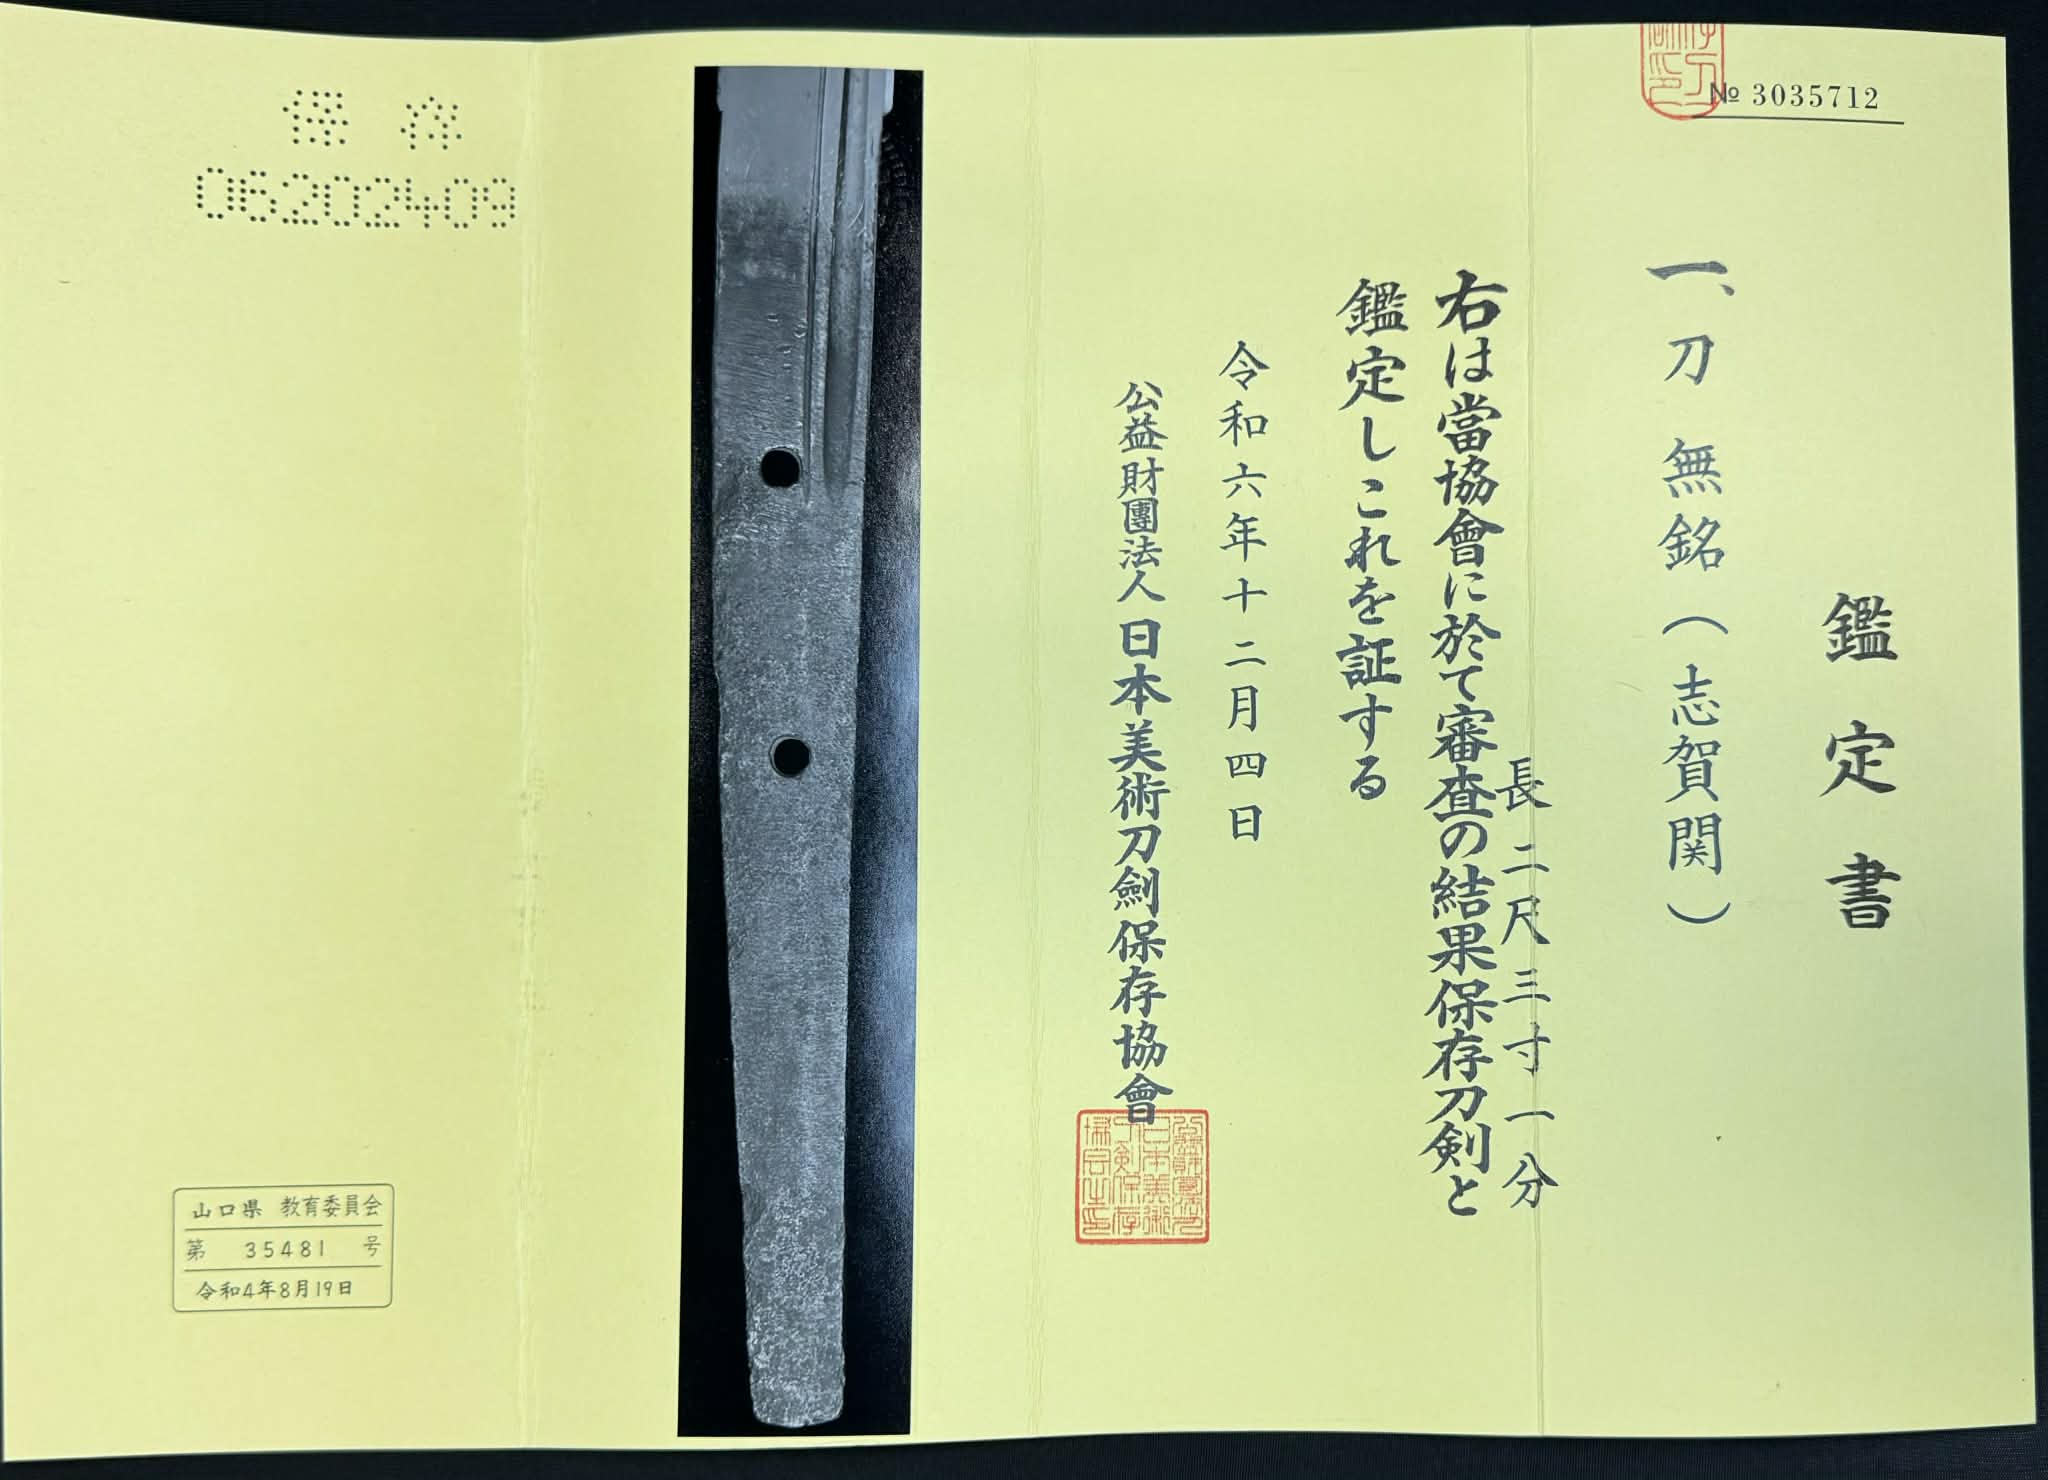 № 3035712
鑑定書
一、刀 無銘（志賀関）
長二尺三寸一分
右は當協會に於て審査の結果保存刀剣と
鑑定しこれを証する
令和六年十二月四日
公益財團法人日本美術刀劍保存協會
06202409
山口県 教育委員会
第 35481 号
令和4年8月19日